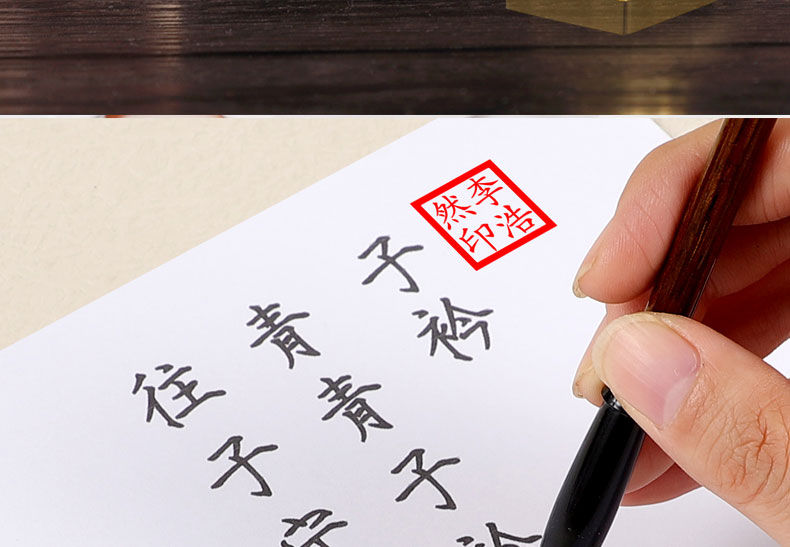 李浩
然印
子衿
青青子衿
往子宁